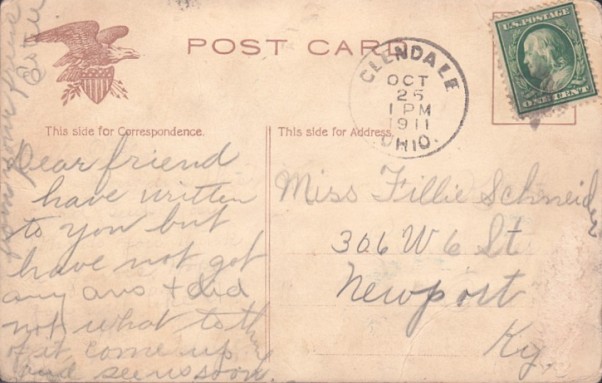 POST CARD
GLENDALE
OCT
25
1 PM
1911
OHIO.
U.S. POSTAGE
ONE CENT
This side for Correspondence.
This side for Address.
Dear friend
have written
to you but
have not got
any ans + did
not what to
of it come up
and see us soon.
from your
Miss Tillie Schneider
306 W 6 St
Newport
Ky.